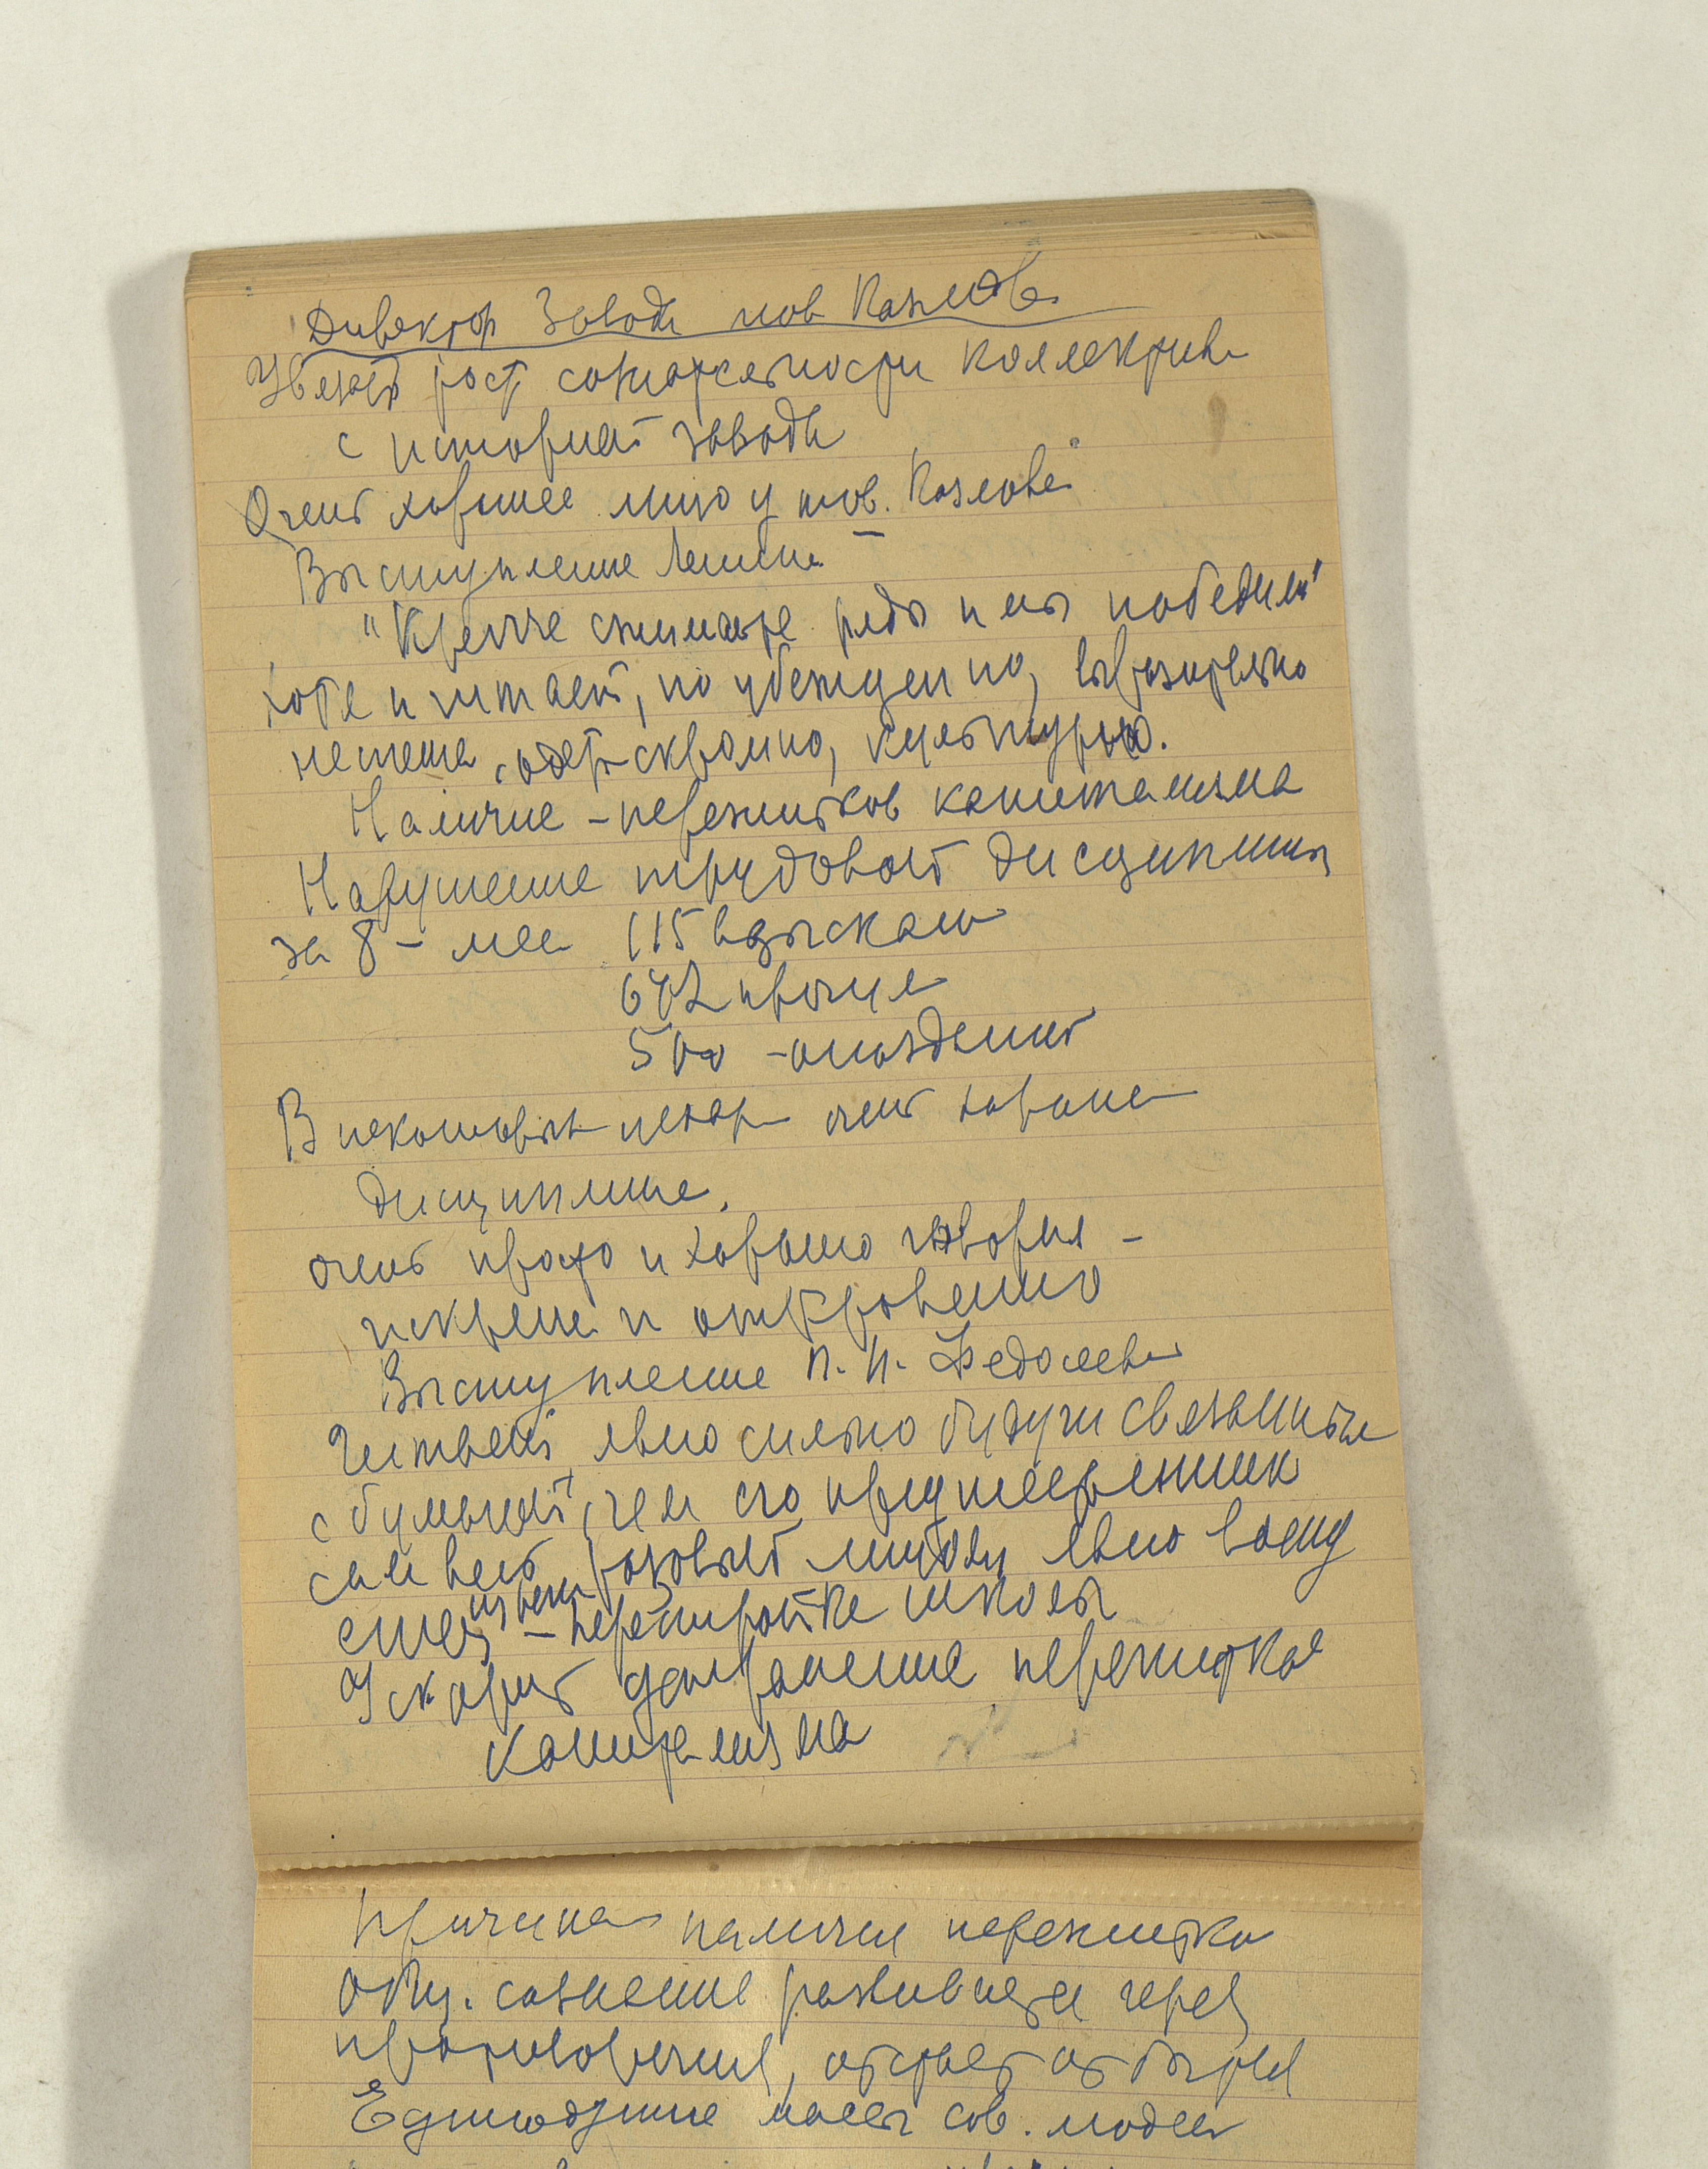 Директор завода тов Козлов
Увязат рост сознательности коллектива
с историей завода
Очень хорошее лицо у тов. Козлова
Выступление Ленина
"Крепче сжимайте ряды и мы победим"
хотя и читает, но убежденно, выразительно
одет скромно, культурно.
Наличие - пережитков капитализма
Нарушение трудовой дисциплины
за 8 - мес 115 взыскан
642 прогула
500 - опозданий
В некоторых цехах очень хорошая
дисциплина.
очень просто и хорошо говорил -
искренне и откровенно
Выступление П. Н. Федосеева
Читает, явно сильно будучи связанным
с бумагой, чем его предшественник
сам весь розовый явно
перестройке школы
Ускорит устранение пережитков
капитализма
Причина наличия пережитков
Общ. сознание развивается через
противоречия, отстает от бытия
Единодушие массы сов. людей